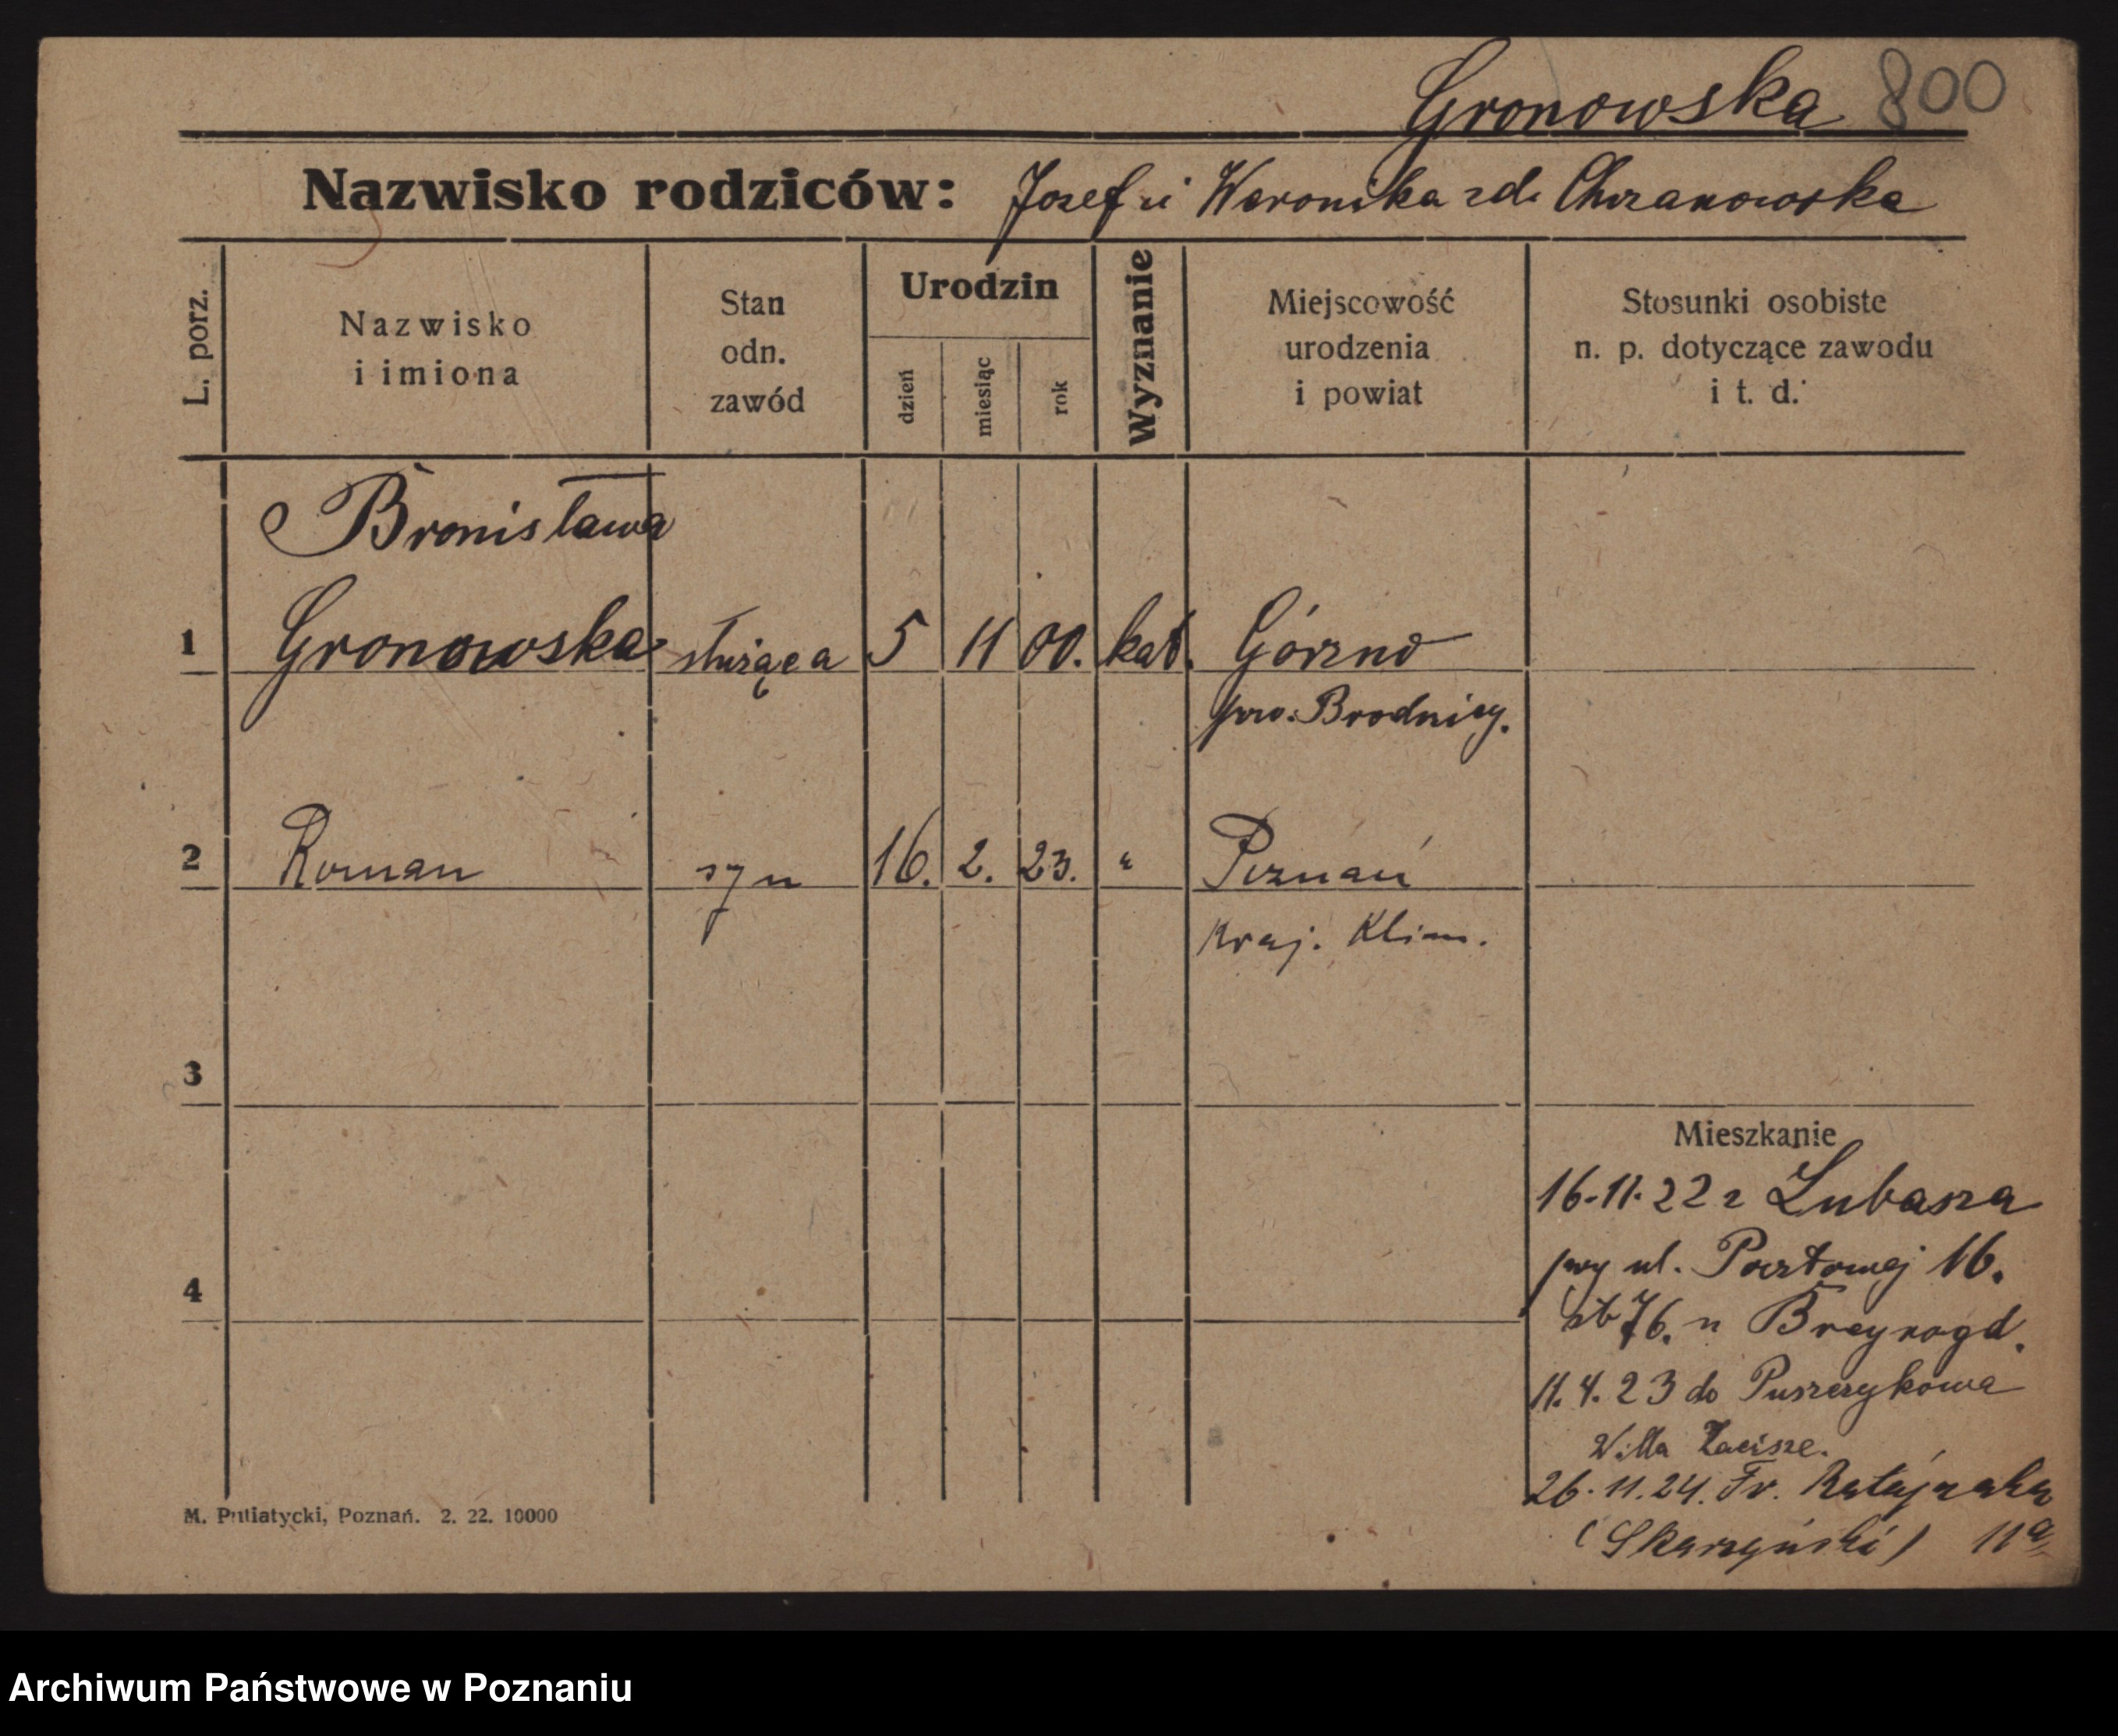 Gronowska 800
Nazwisko rodziców: Josef i Weronika zd. Chrzanowska
L. porz.
Nazwisko
i imiona
Stan
odn.
zawód
Urodzin
dzień
miesiąc
rok
Wyznanie
Miejscowość
urodzenia
i powiat
Stosunki osobiste
n. p. dotyczące zawodu
i t. d.
Bronisława
1 Gronowska służąca 5 11 00. kat. Górzno
pow. Brodnicy.
2 Roman syn 16. 2. 23. " Poznań
Kraj. Klin.
3
Mieszkanie
16.11.22 z Lubasza
przy ul. Pocztowej 16.
4
76. u
11.4.23 do Puszczykowa
Willa Zacisze.
26.11.24. Fr. Ratajczaka
(Skarzyński) 11a
M. Putiatycki, Poznań. 2. 22. 10000
Archiwum Państwowe w Poznaniu